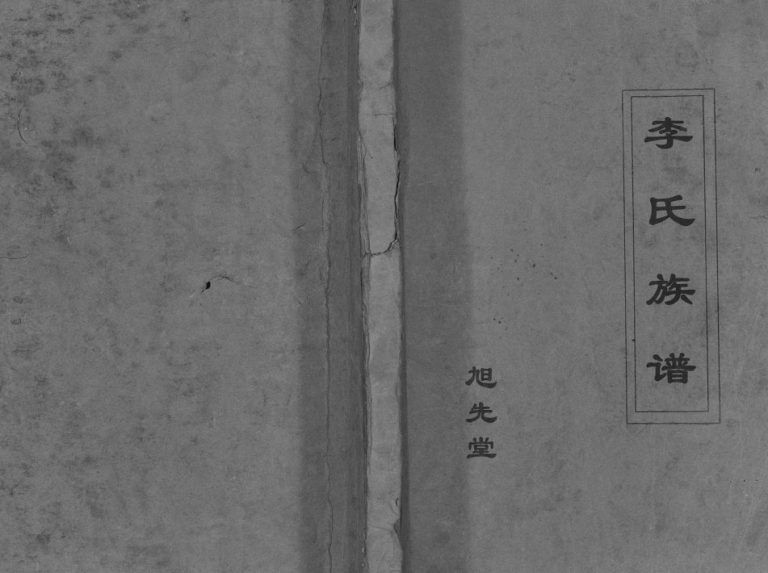 李氏族谱
旭先堂